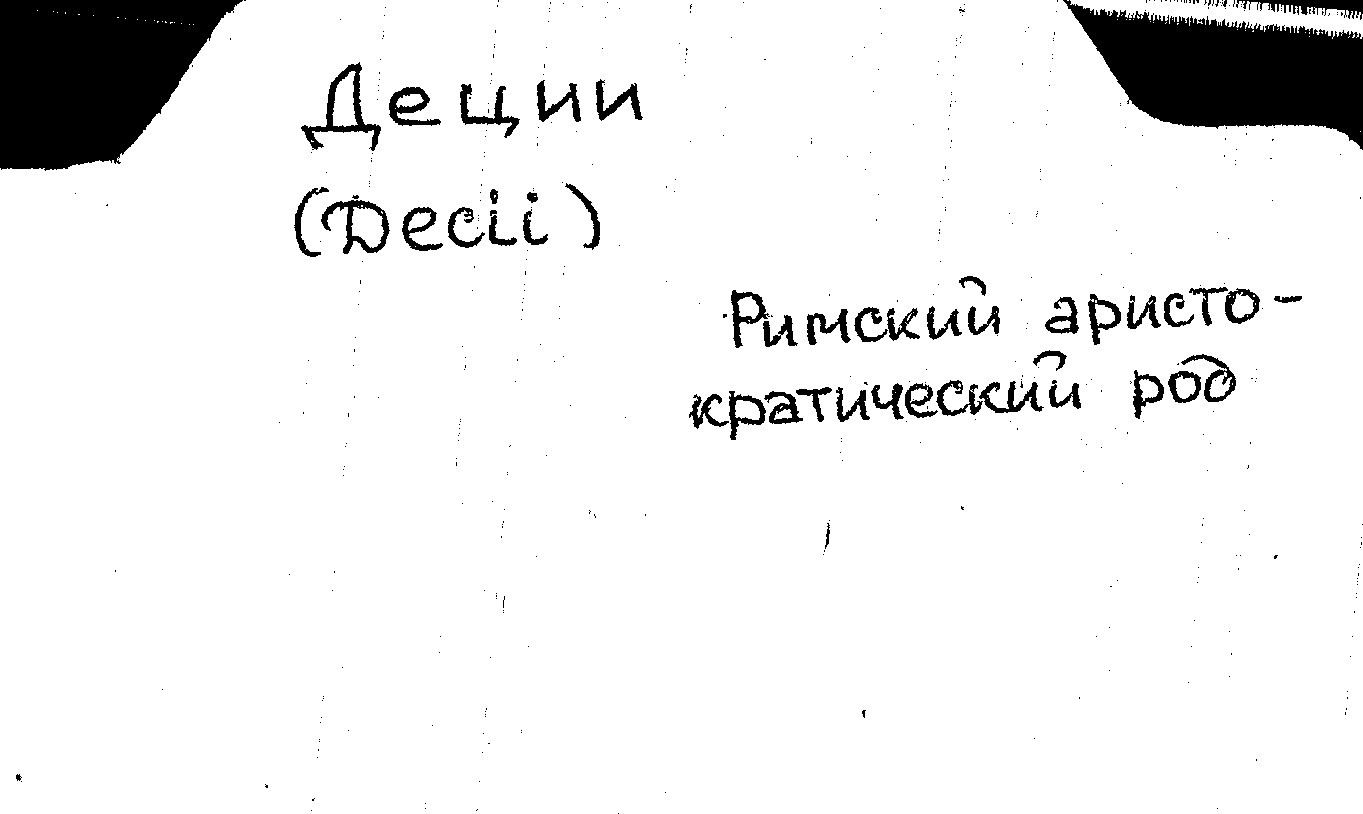 Деции
(Decii)
Римский аристо-
кратический род